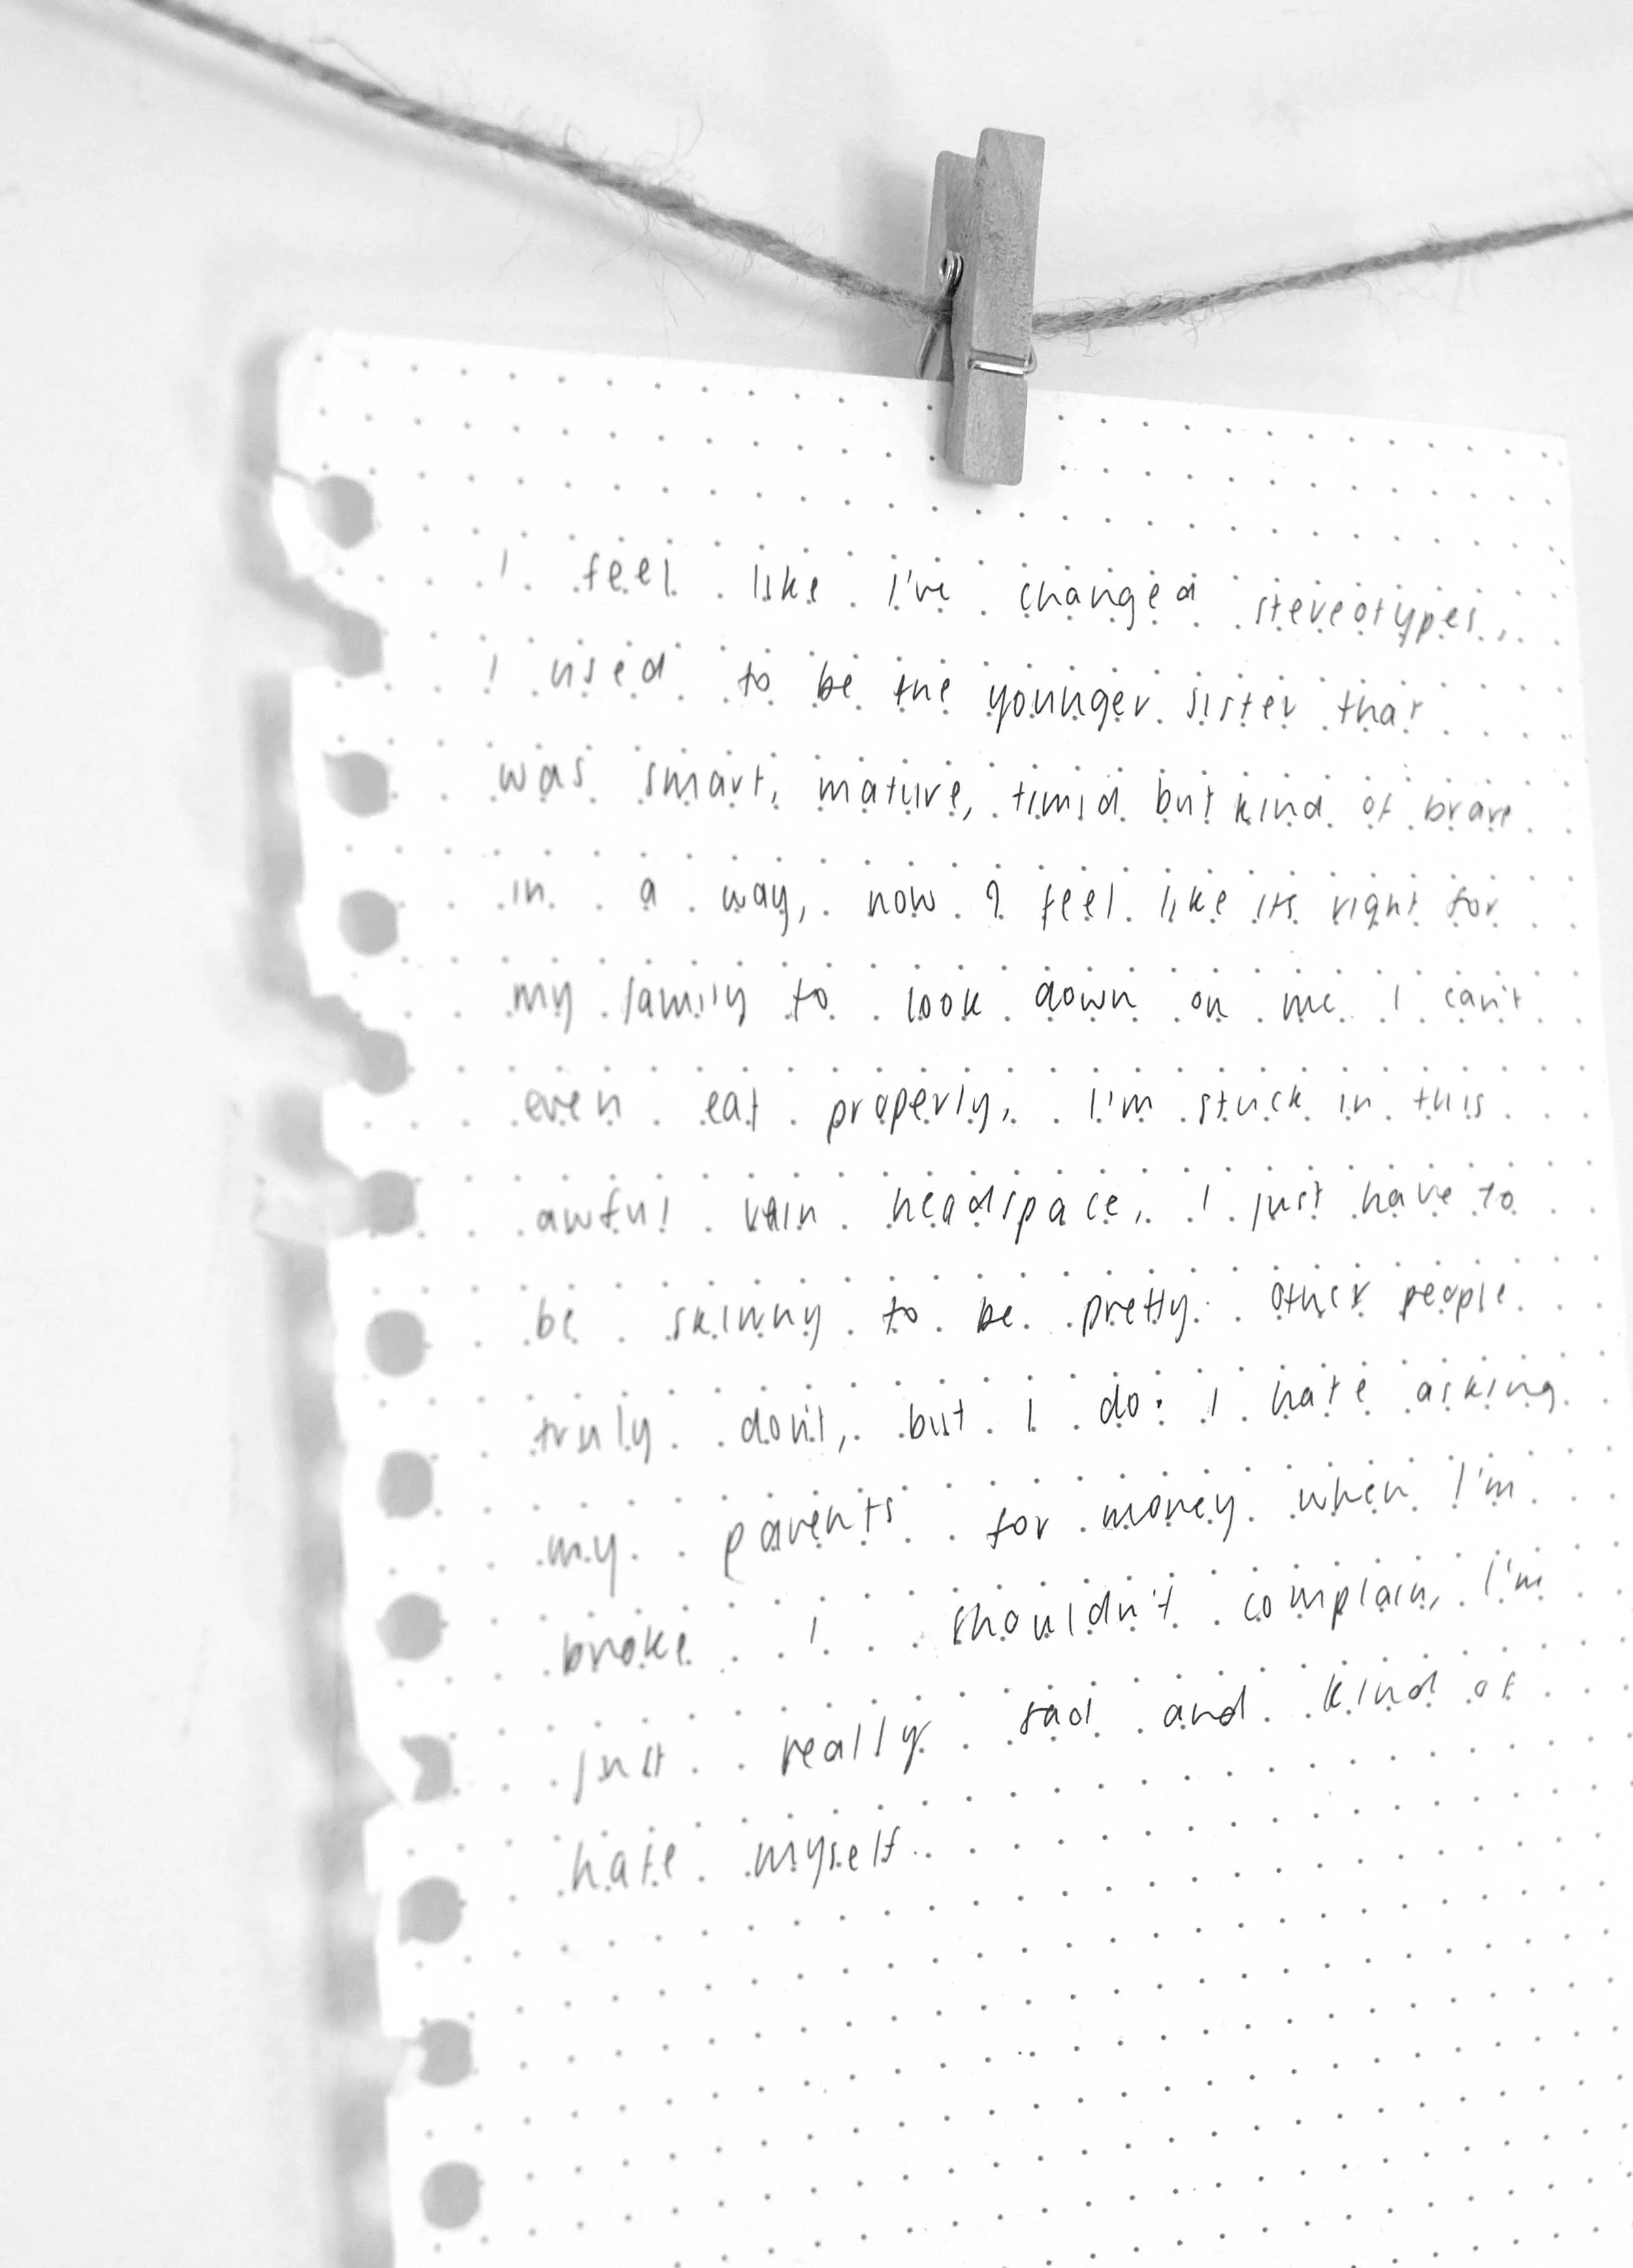 I feel like I've changed stereotypes,
I used to be the younger sister that
was smart, mature, timid but kind of brave
in a way, now I feel like its right for
my family to look down on me I can't
even eat properly, I'm stuck in this
awful vain headspace, I just have to
be skinny to be pretty. Other people
truly don't, but I do. I hate asking
my parents for money when I'm
broke I shouldn't complain, I'm
just really sad and kind of
hate myself.